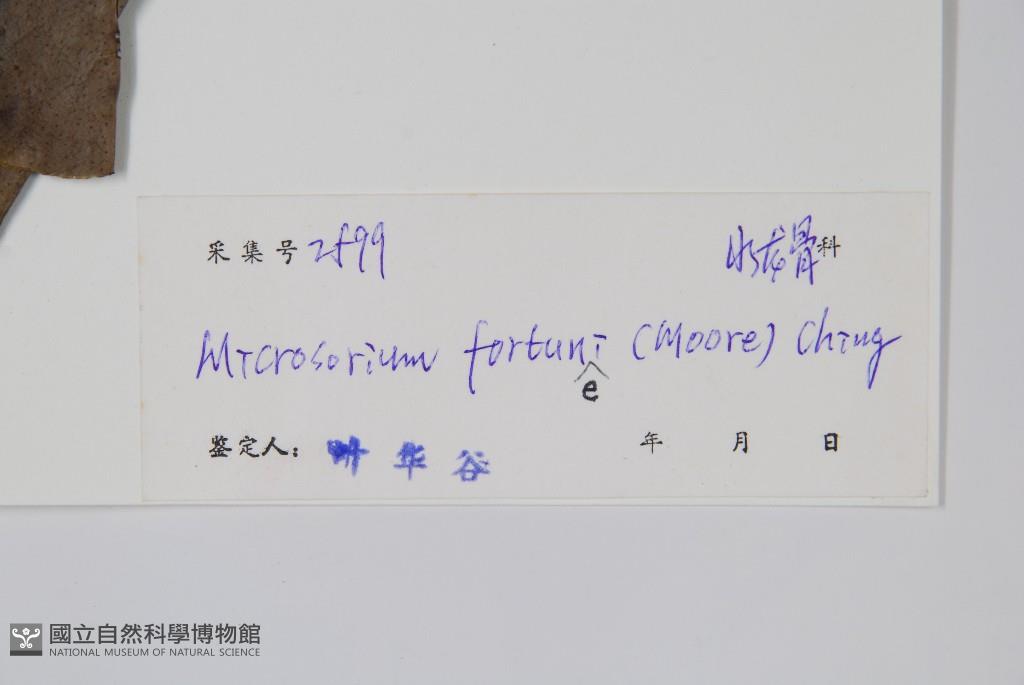 采集号 2599 水龙骨科
Microsorium fortuni (Moore) Ching
e
鉴定人: 叶华谷 年 月 日
國立自然科學博物館
NATIONAL MUSEUM OF NATURAL SCIENCE